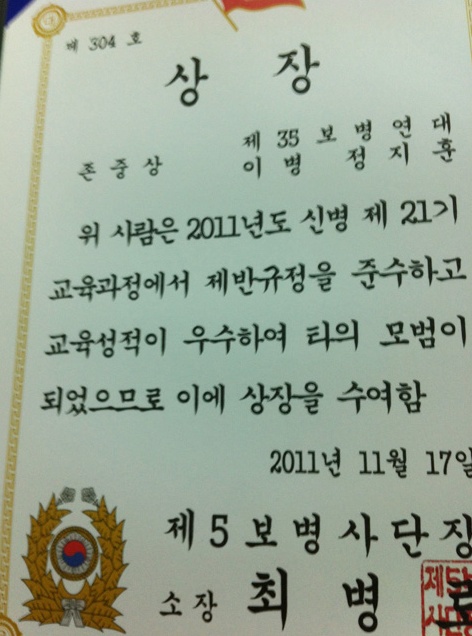 제 304 호
상 장
제 35 보 병 연 대
존 중 상 이 병 정 지 훈
위 사람은 2011년도 신병 제 21기
교육과정에서 제반규정을 준수하고
교육성적이 우수하여 타의 모범이
되었으므로 이에 상장을 수여함
2011년 11월 17일
제 5 보 병 사 단 장
소 장 최 병